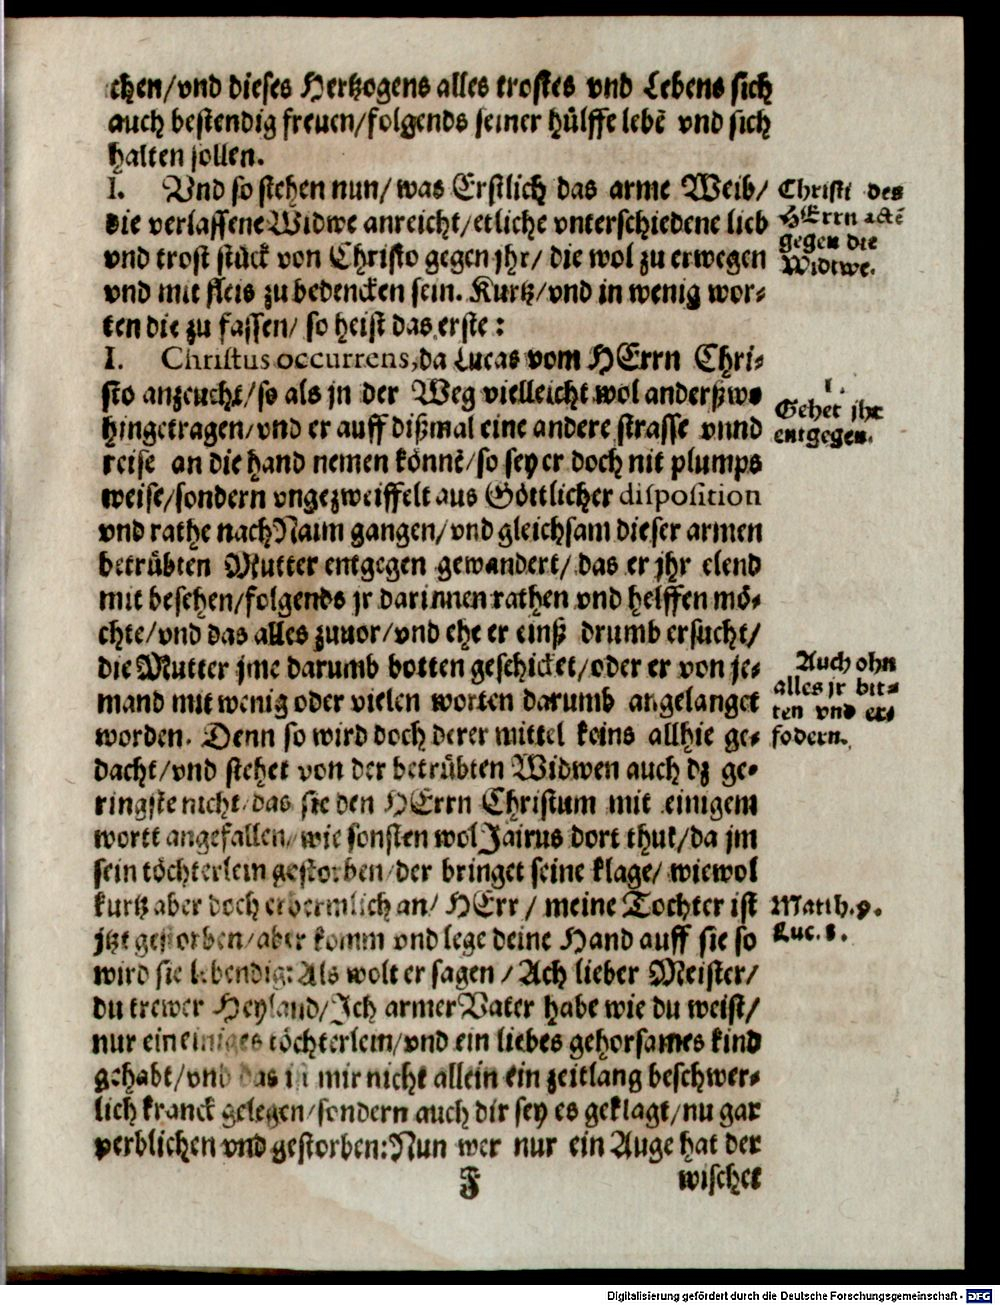 chen/vnd dieses Hertzogens alles trostes vnd Lebens sich
auch bestendig freuen/folgends seiner hülffe lebē vnd sich
halten sollen.
I. Vnd so stehen nun/ was Erstlich das arme Weib/
die verlassene Widwe anreicht/etliche vnterschiedene lieb
vnd trost stück von Christo gegen jhr/ die wol zu erwegen
vnd mit fleis zu bedencken sein. Kurtz/vnd in wenig wor-
ten die zu fassen/ so heist das erste:
Christi des
HErrn actē
gegen die
Widtwe.
I. Christus occurrens, da Lucas vom HErrn Chri-
sto anzeucht/so als jn der Weg vielleicht wol anderßwo
hingetragen/vnd er auff dißmal eine andere strasse vnnd
reise an die hand nemen könnē/so sey er doch nit plumps
weise/sondern vngezweiffelt aus Göttlicher disposition
vnd rathe nach Naim gangen/vnd gleichsam dieser armen
betrübten Mutter entgegen gewandert/ das er jhr elend
mit besehen/folgends jr darinnen rathen vnd helffen mö-
chte/vnd das alles zuuor/vnd ehe er einß drumb ersucht/
die Mutter jme darumb botten geschicket/oder er von je-
mand mit wenig oder vielen worten darumb angelanget
worden. Denn so wird doch derer mittel keins allhie ge-
dacht/vnd stehet von der betrübten Widwen auch dz ge-
ringste nicht/ das sie den HErrn Christum mit einigem
wortt angefallen/ wie sonsten wol Jairus dort thut/da jm
sein töchterlein gestorben/der bringet seine klage/ wiewol
kurtz aber doch erbermlich an/ HErr/ meine Tochter ist
jtzt gestorben/aber komm vnd lege deine Hand auff sie so
wird sie lebendig: Als wolt er sagen/ Ach lieber Meister/
du trewer Heyland/Ich armer Vater habe wie du weist/
nur ein einiges töchterlein/vnd ein liebes gehorsames kind
gehabt/vnd das ist mir nicht allein ein zeitlang beschwer-
lich kranck gelegen/sondern auch dir sey es geklagt/nu gar
verblichen vnd gestorben: Nun wer nur ein Auge hat der
1.
Gehet jhr
entgegen.
Auch ohn
alles jr bit-
ten vnd er-
fodern.
Matth. 9.
Luc. 8.
J
wischet
Digitalisierung gefördert durch die Deutsche Forschungsgemeinschaft - DFG